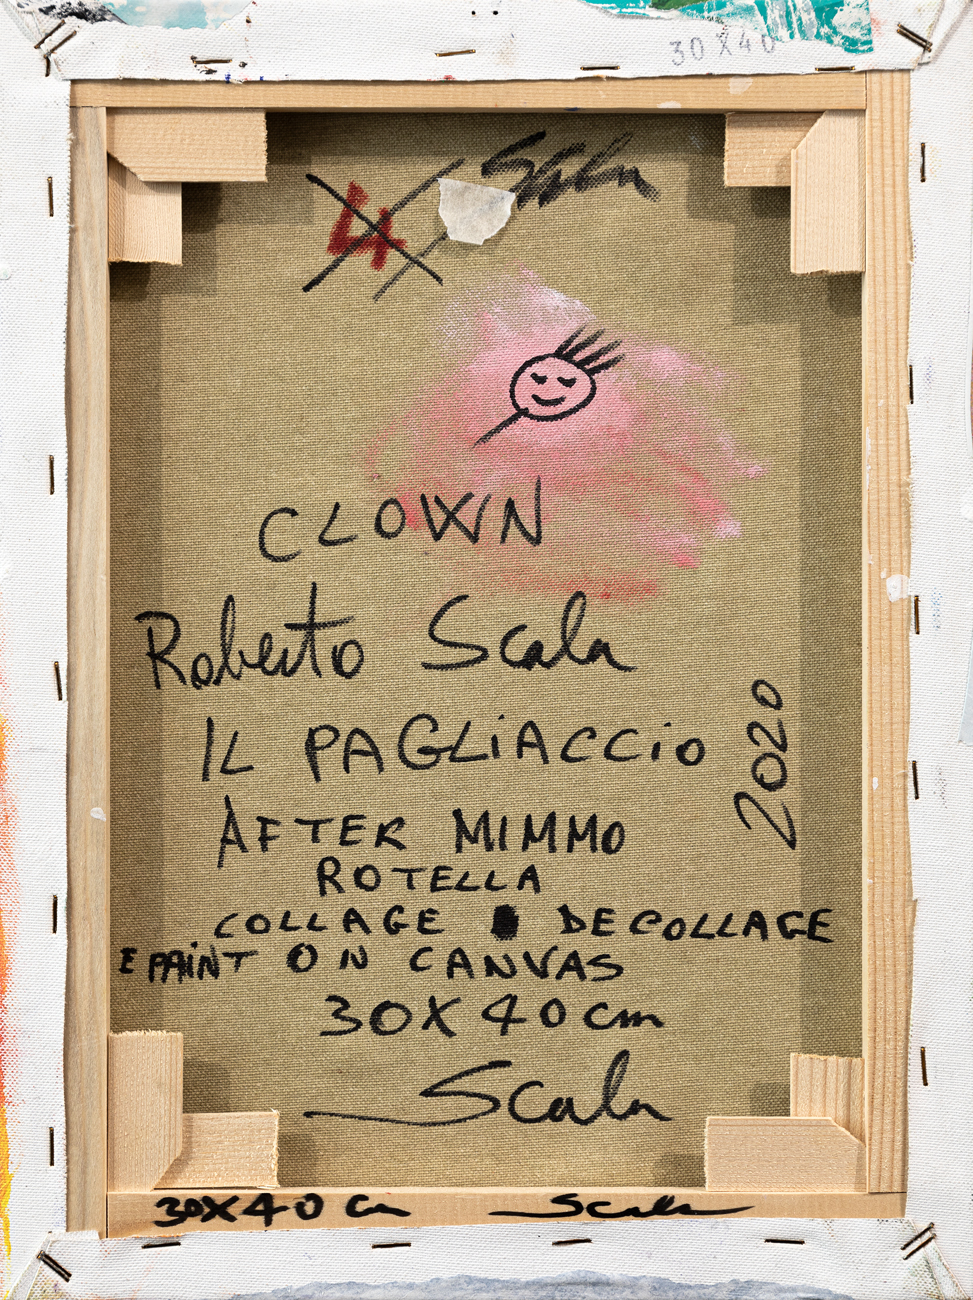 30 X 40
Scala
4
CLOWN
Roberto Scala
IL PAGLiACCiO
2020
AFTER MIMMO
ROTELLA
COLLAGE DECOLLAGE
E PAiNT ON CANVAS
30X40 cm
Scala
30X40 cm Scala